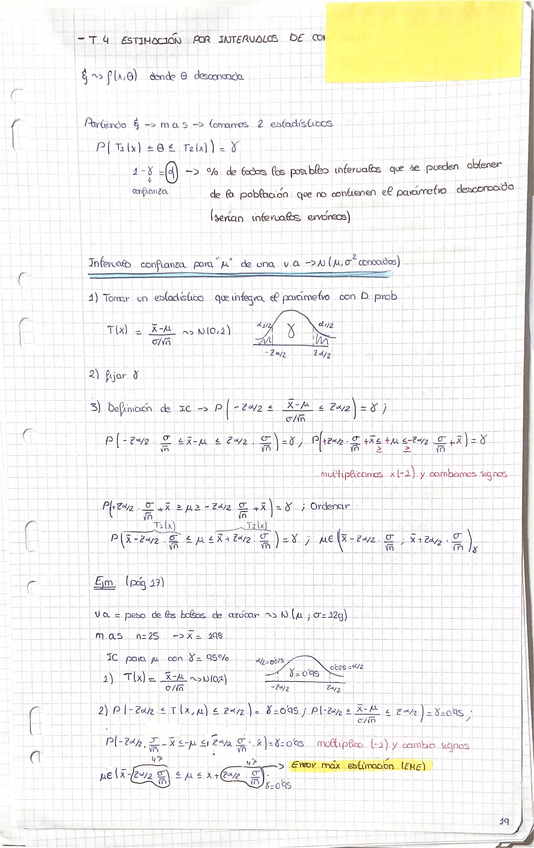 - T.4 ESTIMACIÓN POR INTERVALOS DE CON
ξ ~> f(x,θ) donde θ desconocida
Partiendo ξ -> m a s -> tomamos 2 estadísticos
P(T1(x) ≤ θ ≤ T2(x)) = γ
1-γ = α -> % de todos los posibles intervalos que se pueden obtener
confianza
de la población que no contienen el parámetro desconocido
(serían intervalos erróneos)
Intervalo confianza para "μ" de una v a -> N(μ, σ² conocidos)
1) Tomar un estadístico que integra el parámetro con D. prob
T(x) = x̄-μ / σ/√n ~> N(0,1)
α/2 γ α/2
-Zα/2 Zα/2
2) fijar γ
3) Definición de IC -> P(-Zα/2 ≤ x̄-μ / σ/√n ≤ Zα/2) = γ ;
P(-Zα/2 · σ/√n ≤ x̄-μ ≤ Zα/2 · σ/√n) = γ ; P(+Zα/2 · σ/√n +x̄ ≤ +μ ≤ -Zα/2 · σ/√n +x̄) = γ
≥ ≥
multiplicamos x(-1) y cambiamos signos
P(+Zα/2 · σ/√n + x̄ ≥ μ ≥ -Zα/2 σ/√n + x̄) = γ ; Ordenar
T1(x) T2(x)
P(x̄ - Zα/2 · σ/√n ≤ μ ≤ x̄ + Zα/2 · σ/√n) = γ ; μ∈(x̄ - Zα/2 · σ/√n ; x̄ + Zα/2 · σ/√n)γ
Ejm (pág 17)
v a = peso de las bolsas de azúcar ~> N(μ ; σ=12g)
m a s n=25 -> x̄ = 198
IC para μ con γ = 95%
α/2=0'025 γ=0'95 0'025=α/2
1) T(x) = x̄-μ / σ/√n ~> N(0,1)
-Zα/2 Zα/2
2) P(-Zα/2 ≤ T(x,μ) ≤ Zα/2) = γ=0'95 ; P(-Zα/2 ≤ x̄-μ / σ/√n ≤ Zα/2) = γ=0'95 ;
P(-Zα/2 · σ/√n - x̄ ≤ -μ ≤ Zα/2 σ/√n - x̄) = γ=0'95 multiplico (-1) y cambio signos
4'7 4'7 Error máx estimación (EME)
μ∈(x̄ - Zα/2 σ/√n ≤ μ ≤ x + Zα/2 · σ/√n) γ=0'95
19